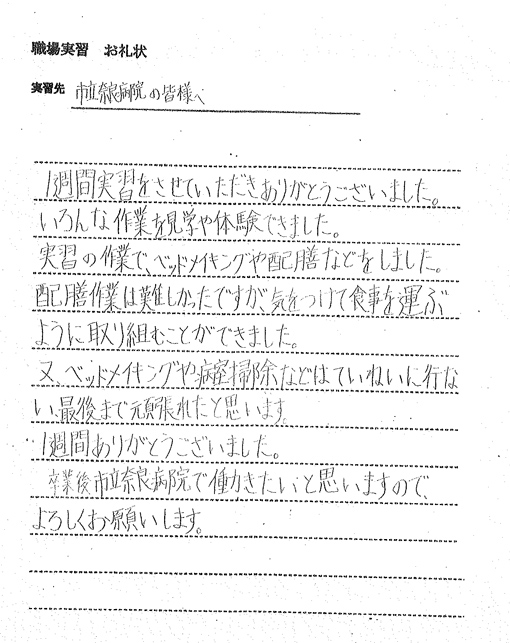 職場実習 お礼状
実習先 市立奈良病院の皆様へ
1週間実習をさせていただきありがとうございました。
いろんな作業を見学や体験できました。
実習の作業で、ベッドメイキングや配膳などをしました。
配膳作業は難しかったですが、気をつけて食事を運ぶ
ように取り組むことができました。
又、ベッドメイキングや病室掃除などはていねいに行な
い、最後まで頑張れたと思います。
1週間ありがとうございました。
卒業後市立奈良病院で働きたいと思いますので、
よろしくお願いします。